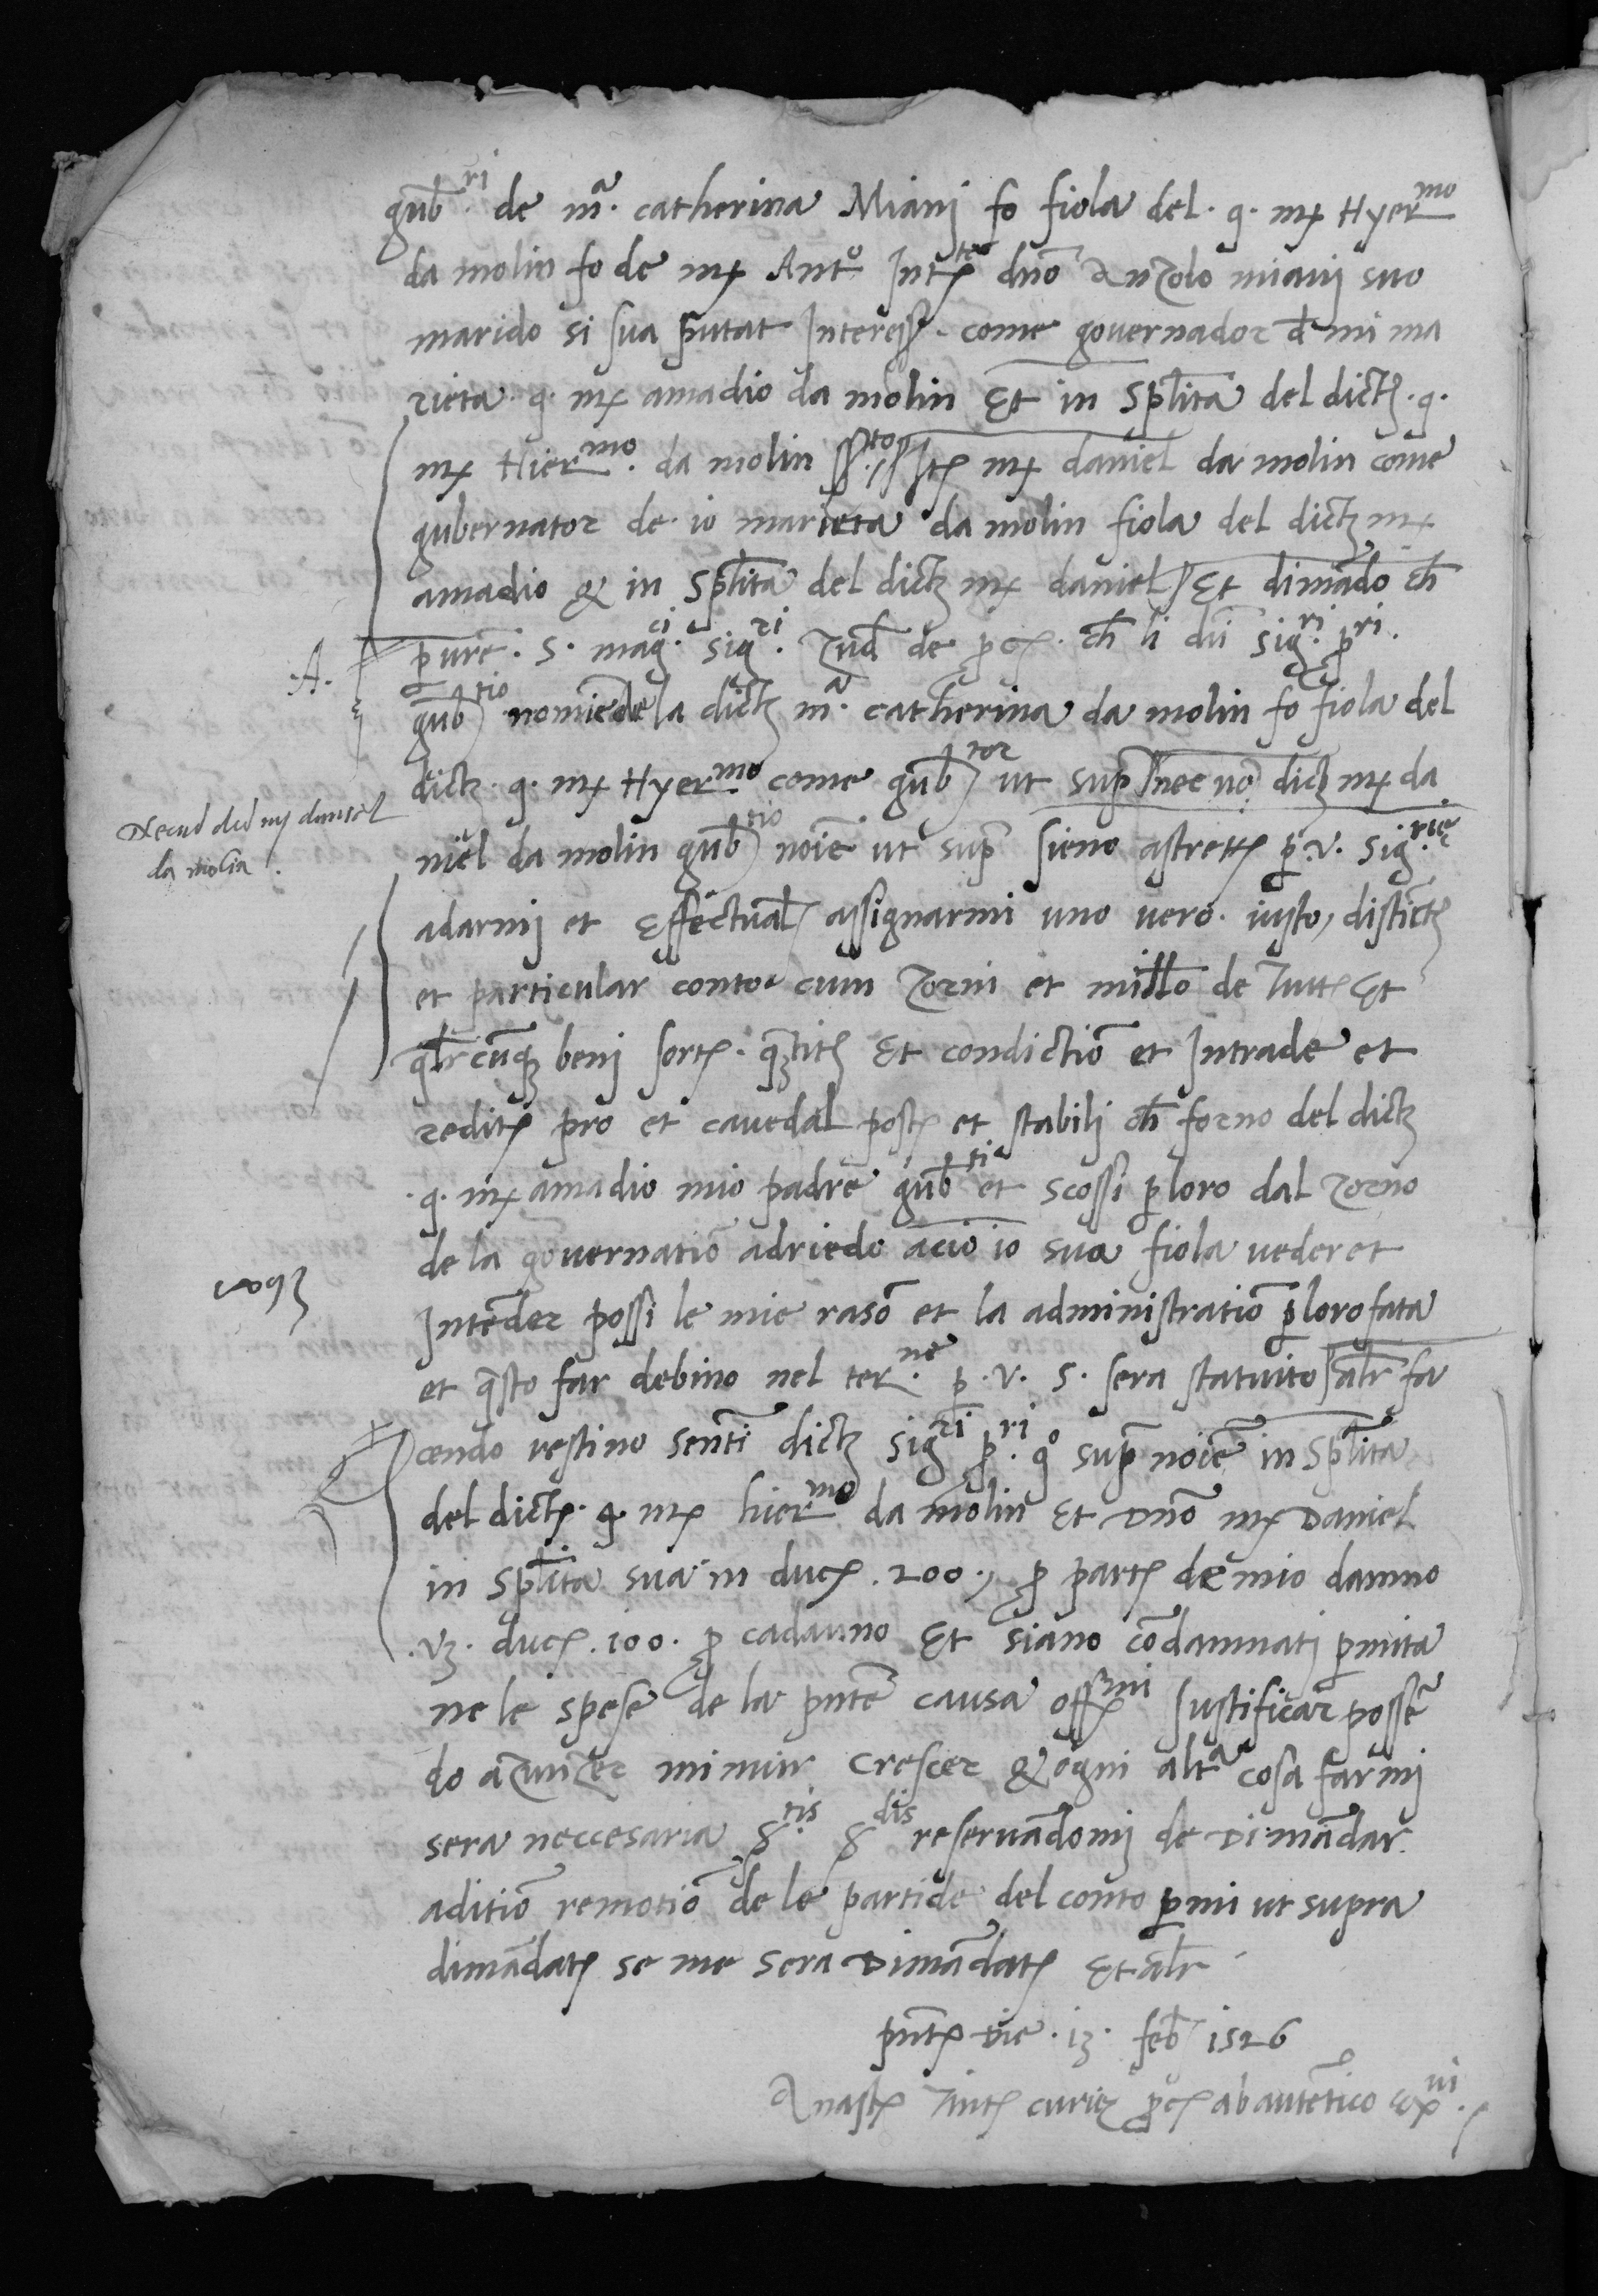 gub.ri de m.a catherina Miani fo fiola del. q. mx Hyer.mo
da molin fo de mx Ant.o Int.te dño Anzolo miani suo
marido si sua putat Interesse. come governador de mi ma
rieta. q. mx amadio da molin Et in Splita del dict. q.
mx Hier.mo da molin mx daniel da molin come
gubernator de. io marieta da molin fiola del dict mx
amadio & in Splita del dict mx daniel Et dimado ch
.A. pure. S. mag.ci sig.ri zud de pc. ch li dui sig.ri p.ri
gub.tio nomie de la dict m.a catherina da molin fo fiola del
dict. q. mx Hyer.mo come gub.tor ut sup nec no dict mx da
Necno ded mx daniel
da molin
niel da molin gub.tio noie ut sup sieno astrett p. v. Sig.rie
adarmi et effectual assignarmi uno vero. iusto, distict
et particular conto cum zorni et millo de Tutt Et
qlrcuq beni sort. qtit Et condictio et Intrade et
redit pro et cavedal post et stabili ch forno del dict
.q. mx amadio mio padre gub.ti et scossi p loro dal zorno
de la governatio adriedo acio io sua fiola veder et
Inteder possi le mie raso et la administratio p loro fata
et qsto far debino nel ter.ne p. v. S. sera statuito alr fa
cendo vestino senti dict sig.ri p.ri q.o sup noie in Splita
del dict. q. mx hier.mo da molin Et dño mx Daniel
in Splita sua in duc. 200., p part de mio damno
.vz. duc. 100. p cadauno Et siano codamnati p mita
ne le spese de la pnte causa off.mi Iustificar posse
do azunzer minuir crescer & ogni alt.a cosa farmi
sera neccesaria &.tis &.dis reservadomi de Dimadar
aditio remotio de le partide del conto p mi ut supra
dimadat se me sera Dimadat Et alr
pnt Die. 13. feb 1526
curie pc ab autetico